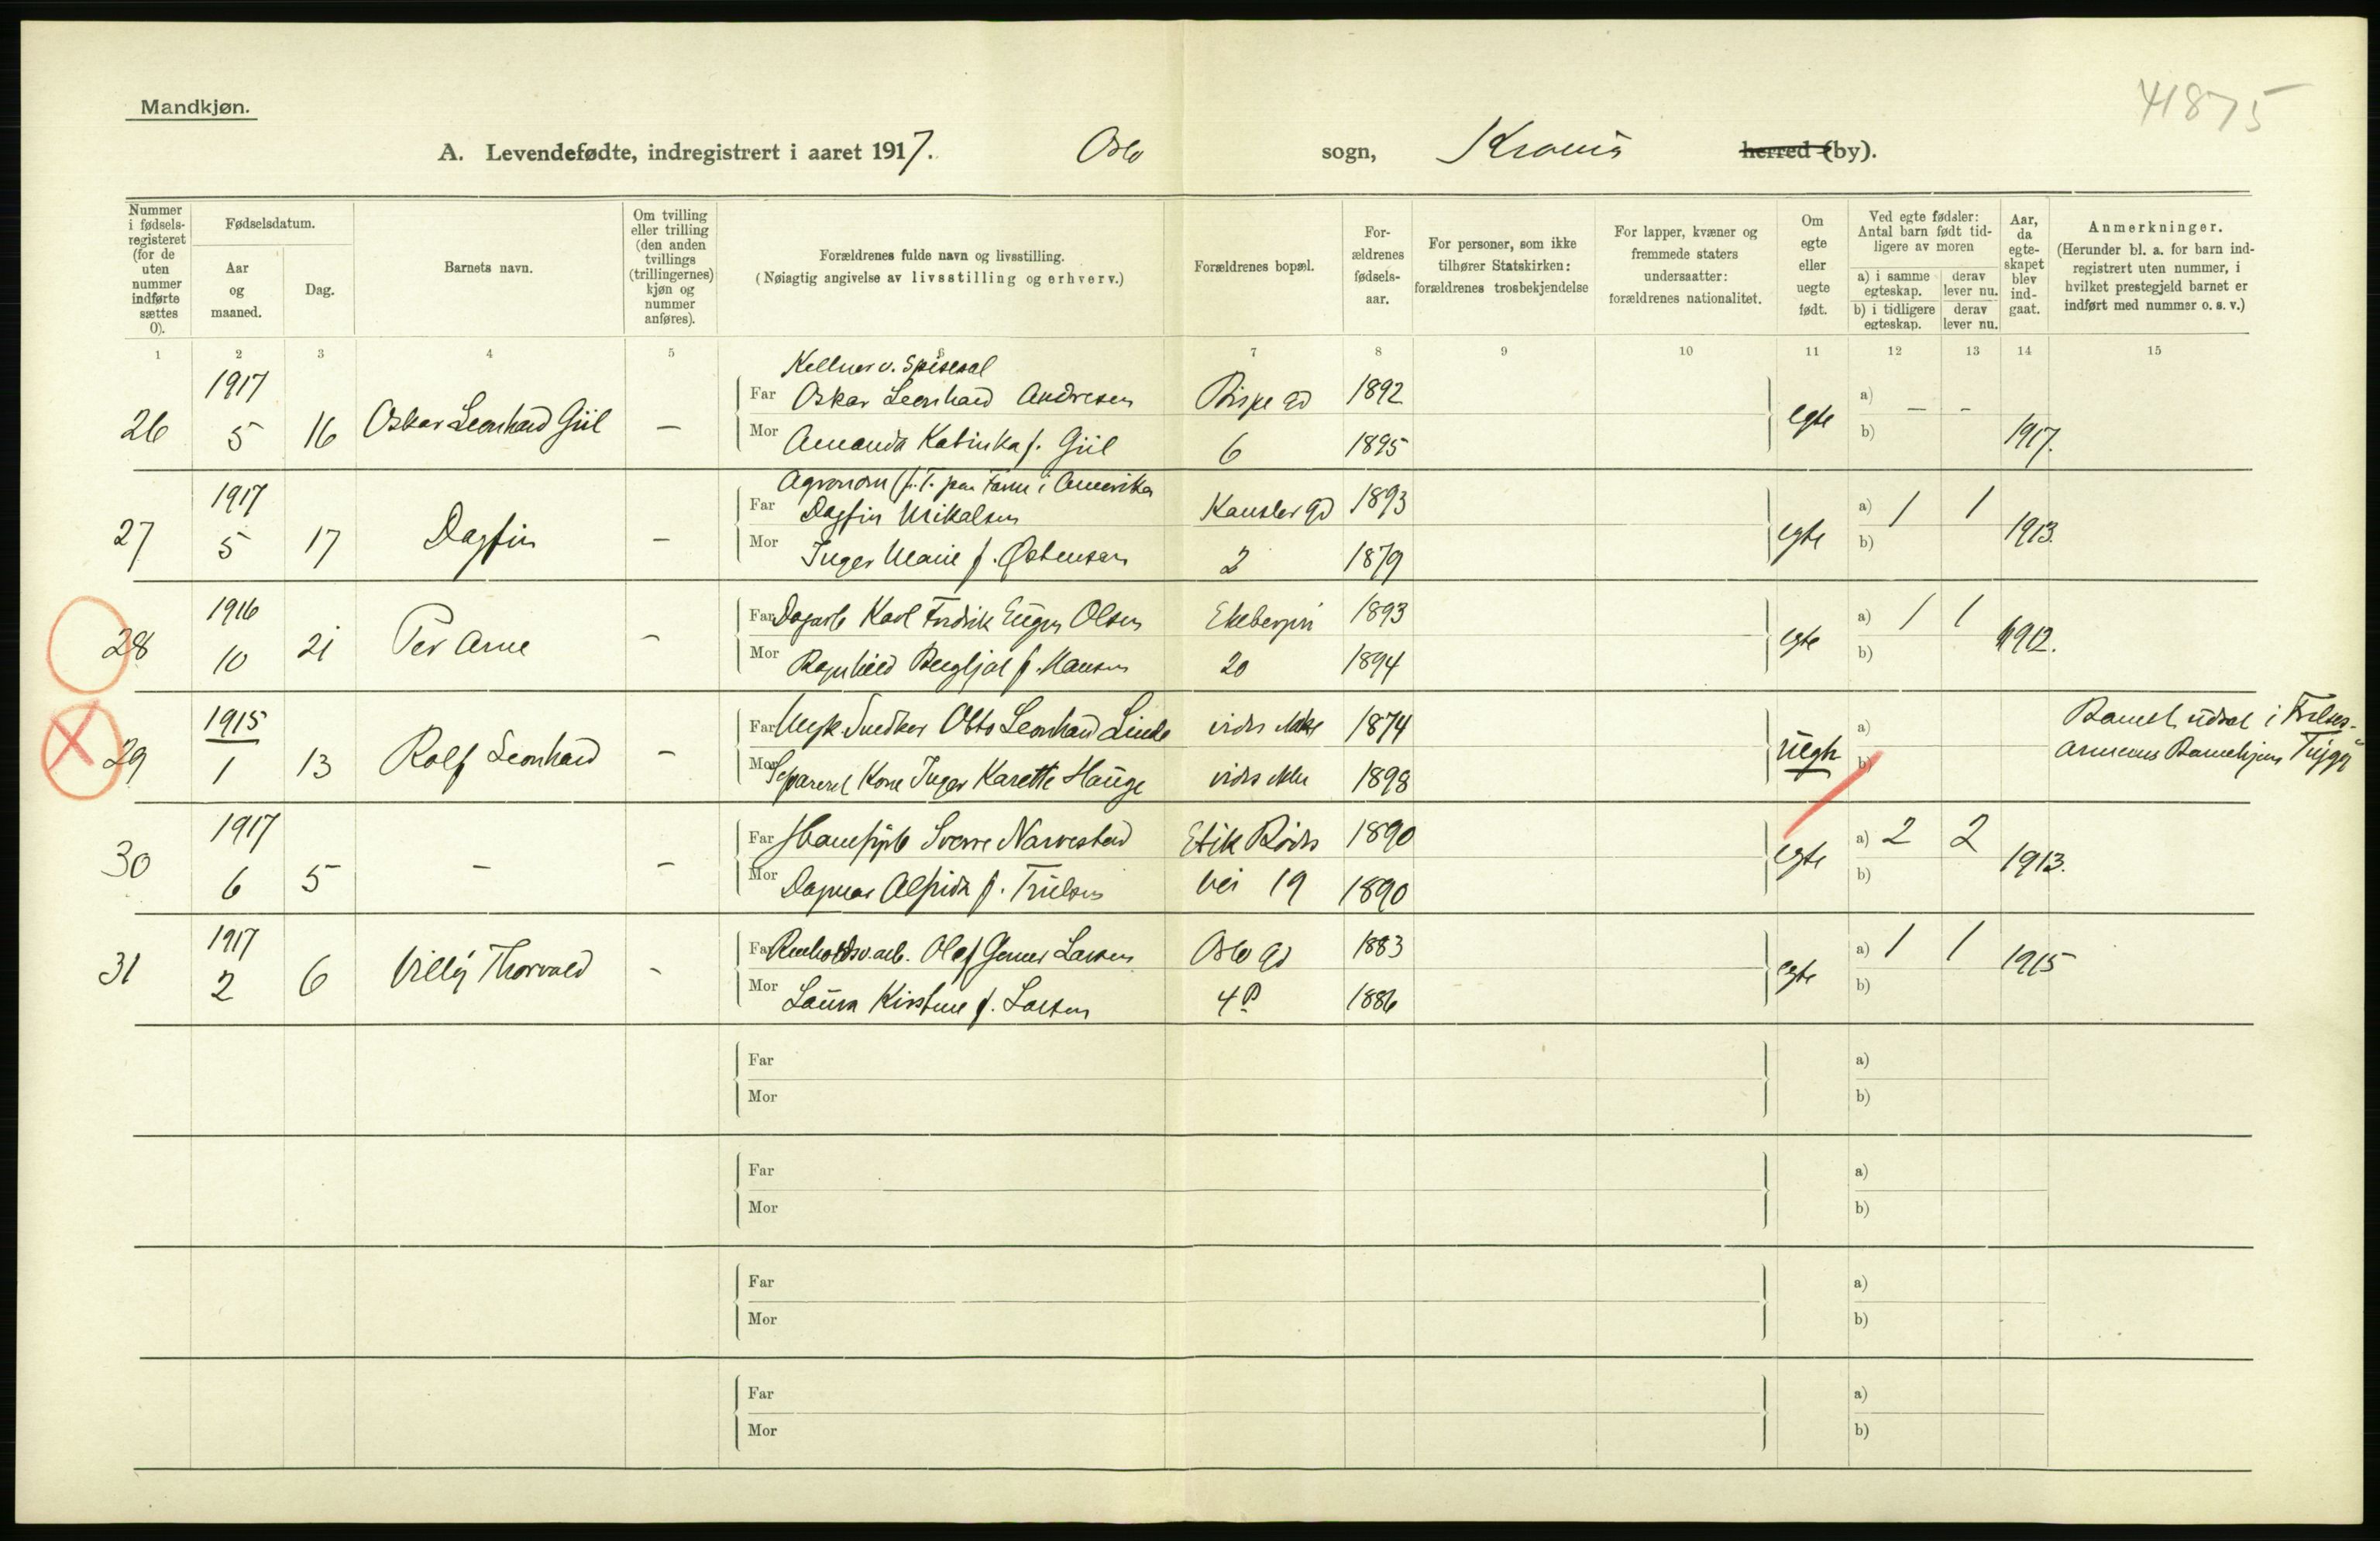 41875
Mandkjøn.
A. Levendefødte, indregistrert i aaret 1917. Oslo sogn, Krania herred (by).
Nummer i fødselsregisteret (for de uten nummer indførte sættes 0).
Fødselsdatum.
Aar og maaned.
Dag.
Barnets navn.
Om tvilling eller trilling (den anden tvillings (trillingernes) kjøn og nummer anføres).
Forældrenes fulde navn og livsstilling.
(Nøiagtig angivelse av livsstilling og erhverv.)
Forældrenes bopæl.
Forældrenes fødselsaar.
For personer, som ikke tilhører Statskirken: forældrenes trosbekjendelse
For lapper, kvæner og fremmede staters undersaatter: forældrenes nationalitet.
Om egte eller uegte født.
Ved egte fødsler: Antal barn født tidligere av moren
a) i samme egteskap.
derav lever nu.
b) i tidligere egteskap.
derav lever nu.
Aar, da egteskapet blev indgaat.
Anmerkninger.
(Herunder bl. a. for barn indregistrert uten nummer, i hvilket prestegjeld barnet er indført med nummer o. s. v.)
1 2 3 4 5 6 7 8 9 10 11 12 13 14 15
Kellner v. Spisesal
1917 Far Oskar Leonhard Andresen Bispe gd 1892 a) — -
26 5 16 Oskar Leonhard Giil — egte
Mor Amanda Katinka f. Giil 6 1895 b) 1917.
Agronom (f. T. paa Farm i Amerika
1917 Far Dagfin Mikalsen Kansler gd 1893 a) 1 1
27 5 17 Dagfin — egte 1913.
Mor Inger Marie f. Østensen 2 1879 b)
1916 Far Dagarb Karl Fredrik Eugen Olsen Ekebergvn 1893 a) 1 1
28 10 21 Per Arne — egte 1912.
Mor Ragnhild Bergljot f. Hansen 20 1894 b)
1915 Far Snedker Otto Leonhard Linde 1874 a) Barnet udsat i Frelses-
29 1 13 Rolf Leonhard — uegte armeens Barnehjem Trygg
Mor Separeret Kone Inger Karette Hauge 1898 b)
1917 Far Sverre Narvestad Etik Rødes 1890 a) 2 2
30 6 5 — — egte 1913.
Mor Dagmar Alfida f. Trulsen vei 19 1890 b)
1917 Far Renholdsv.arb. Olaf Gerner Larsen Oslo gd 1883 a) 1 1 1915
31 2 6 Villy Thorvald - egte
Mor Laura Kirstine f. Larsen 4B 1886 b)
Far a)
Mor b)
Far a)
Mor b)
Far a)
Mor b)
Far a)
Mor b)